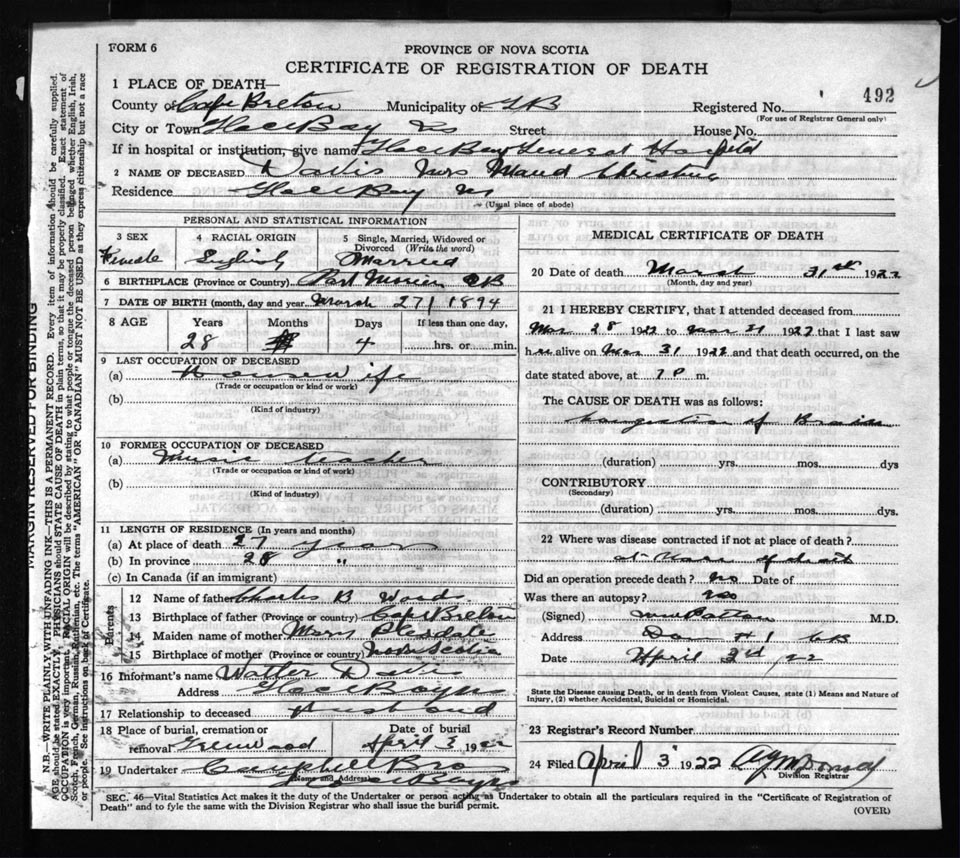 FORM 6
PROVINCE OF NOVA SCOTIA
CERTIFICATE OF REGISTRATION OF DEATH
492
1 PLACE OF DEATH—
County of Cape Breton Municipality of GB Registered No.
(For use of Registrar General only)
City or Town Glace Bay NS Street House No.
If in hospital or institution, give name Glace Bay General Hospital
2 NAME OF DECEASED Davis Mrs Maud Christina
Residence Glace Bay NS
(Usual place of abode)
PERSONAL AND STATISTICAL INFORMATION
3 SEX 4 RACIAL ORIGIN 5 Single, Married, Widowed or Divorced (Write the word)
Female English Married
6 BIRTHPLACE (Province or Country) Port Morien CB
7 DATE OF BIRTH (month, day and year) March 27 1894
8 AGE Years Months Days If less than one day,
28 4 hrs. or min.
9 LAST OCCUPATION OF DECEASED
(a) Housewife
(Trade or occupation or kind or work)
(b)
(Kind of industry)
10 FORMER OCCUPATION OF DECEASED
(a) Music teacher
(Trade or occupation or kind of work)
(b)
(Kind of industry)
11 LENGTH OF RESIDENCE (In years and months)
(a) At place of death 27 years
(b) In province 28 "
(c) In Canada (if an immigrant)
Parents
12 Name of father Charles B Woods
13 Birthplace of father (Province or country) Cape Breton
14 Maiden name of mother Mary
15 Birthplace of mother (Province or country) Nova Scotia
16 Informant's name Walter Davis
Address Glace Bay NS
17 Relationship to deceased Husband
18 Place of burial, cremation or removal Greenwood Date of burial April 3 1922
19 Undertaker Campbell Bro
(Name and Address) Glace Bay NS
MEDICAL CERTIFICATE OF DEATH
20 Date of death March 31st 1922
(Month, day and year)
21 I HEREBY CERTIFY, that I attended deceased from
Mar 28 1922 to Mar 31 1922 that I last saw
her alive on Mar 31 1922 and that death occurred, on the
date stated above, at 7 P m.
The CAUSE OF DEATH was as follows:
Congestion of Brain
(duration) yrs. mos. dys
CONTRIBUTORY
(Secondary)
(duration) yrs. mos. dys.
22 Where was disease contracted if not at place of death?
at place of death
Did an operation precede death? No Date of
Was there an autopsy? No
(Signed) M.D.
Address Dom # 1 CB
Date April 3rd /22
State the Disease causing Death, or in death from Violent Causes, state (1) Means and Nature of
Injury, (2) whether Accidental, Suicidal or Homicidal.
23 Registrar's Record Number
24 Filed April 3 1922 McDonald
Division Registrar
SEC. 46—Vital Statistics Act makes it the duty of the Undertaker or person acting as Undertaker to obtain all the particulars required in the "Certificate of Registration of
Death" and to fyle the same with the Division Registrar who shall issue the burial permit.
(OVER)
MARGIN RESERVED FOR BINDING
N.B.—WRITE PLAINLY, WITH UNFADING INK—THIS IS A PERMANENT RECORD. Every item of information should be carefully supplied.
AGE should be stated EXACTLY. PHYSICIANS should STATE CAUSE OF DEATH in plain terms, so that it may be properly classified. Exact statement of
OCCUPATION is very important. RACIAL ORIGIN will be described by stating to what people or tongue the deceased person belonged whether English, Irish,
Scotch, French, German, Russian, Ruthenian, etc. The terms "AMERICAN" OR "CANADIAN" MUST NOT BE USED as they express citizenship but not a race
or people. See instructions on back of Certificate.